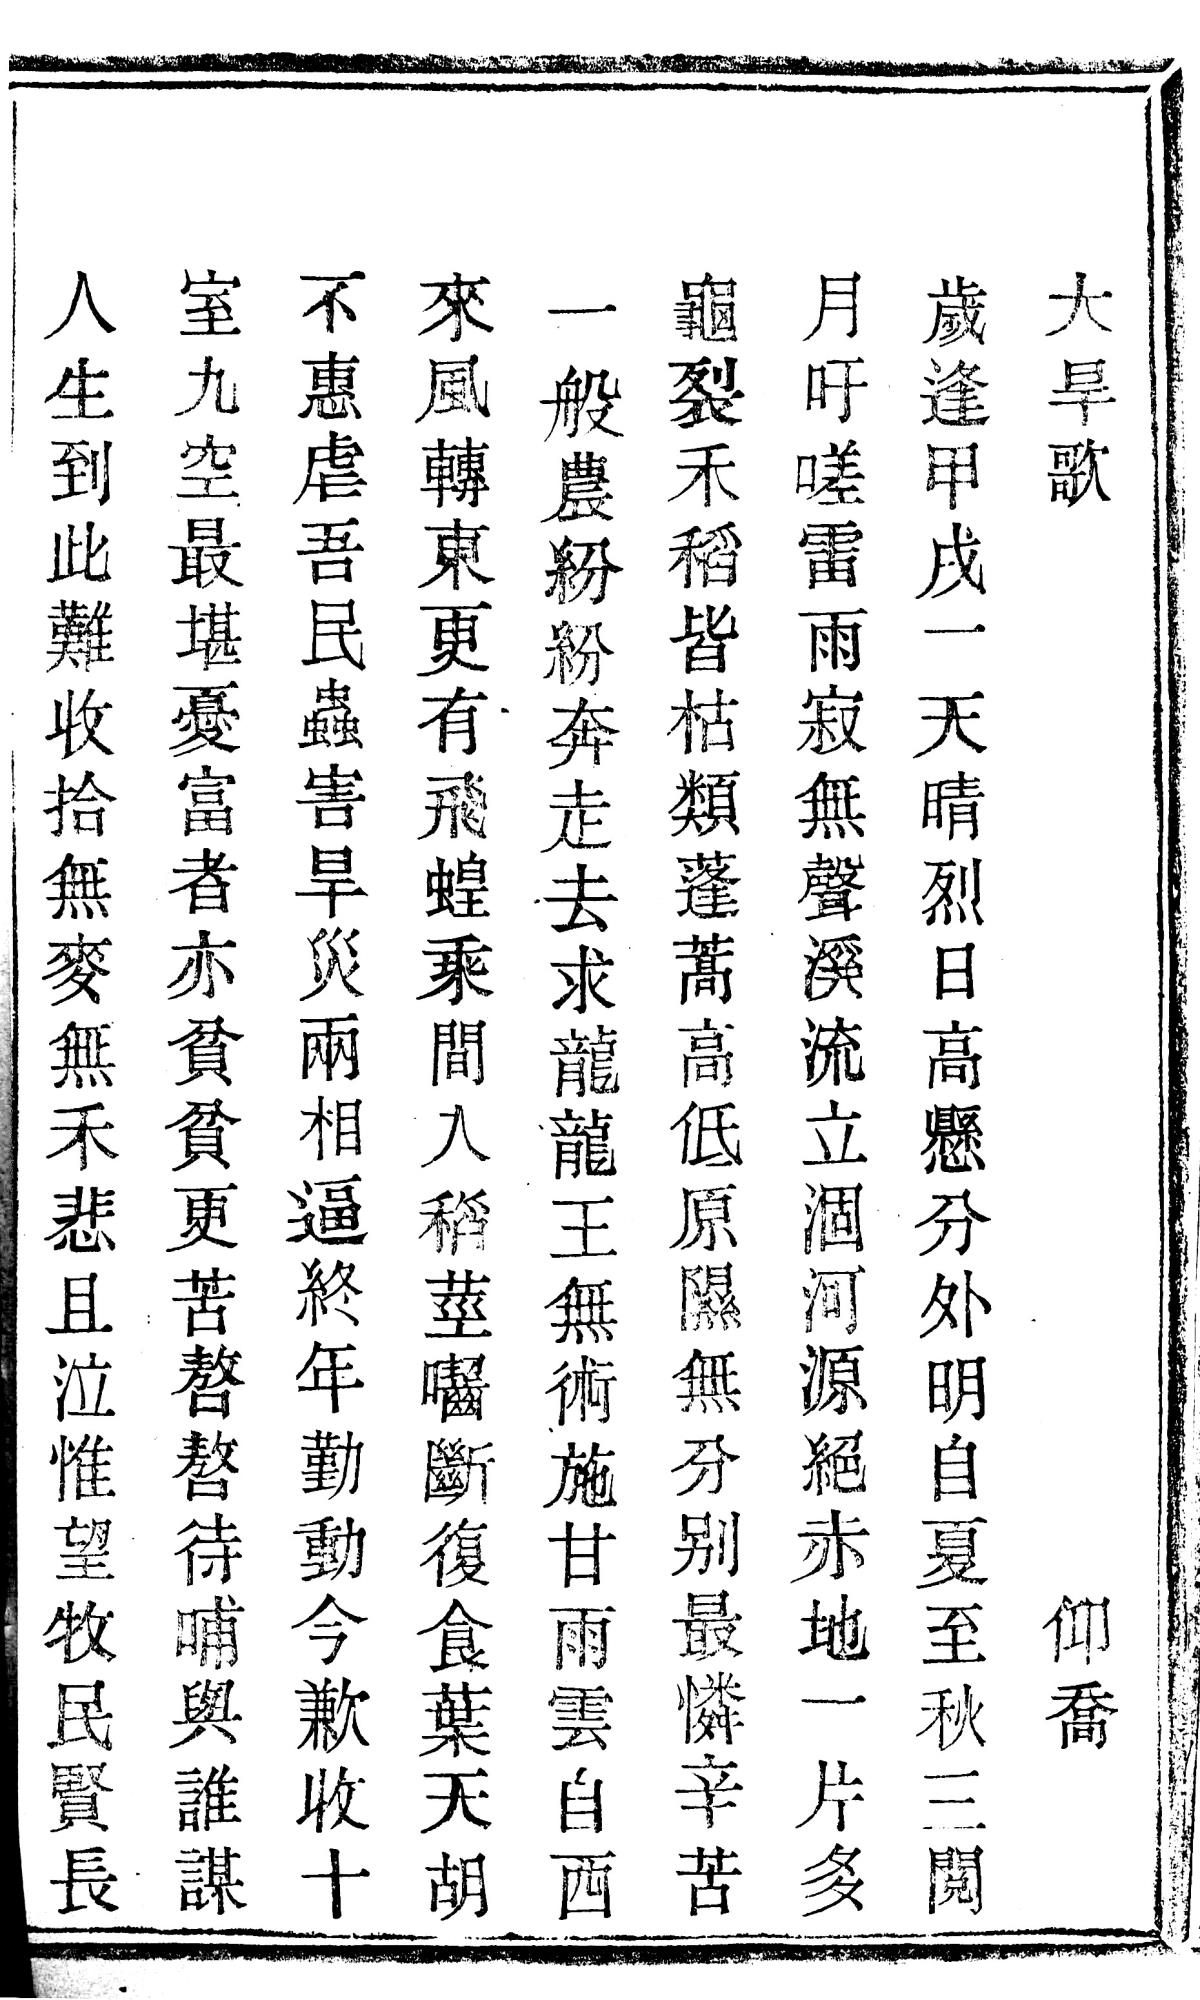 大旱歌　仰喬
歲逢甲戌一天晴烈日高懸分外明自夏至秋三閱
月吁嗟雷雨寂無聲溪流立涸河源絕赤地一片多
龜裂禾稻皆枯類蓬蒿高低原隰無分别最憐辛苦
一般農紛紛奔走去求龍龍王無術施甘雨雲自西
來風轉東更有飛蝗乘間入稻莖囓斷復食葉天胡
不惠虐吾民蟲害旱災兩相逼終年勤動今歉收十
室九空最堪憂富者亦貧貧更苦嗸嗸待哺與誰謀
人生到此難收拾無麥無禾悲且泣惟望牧民賢長